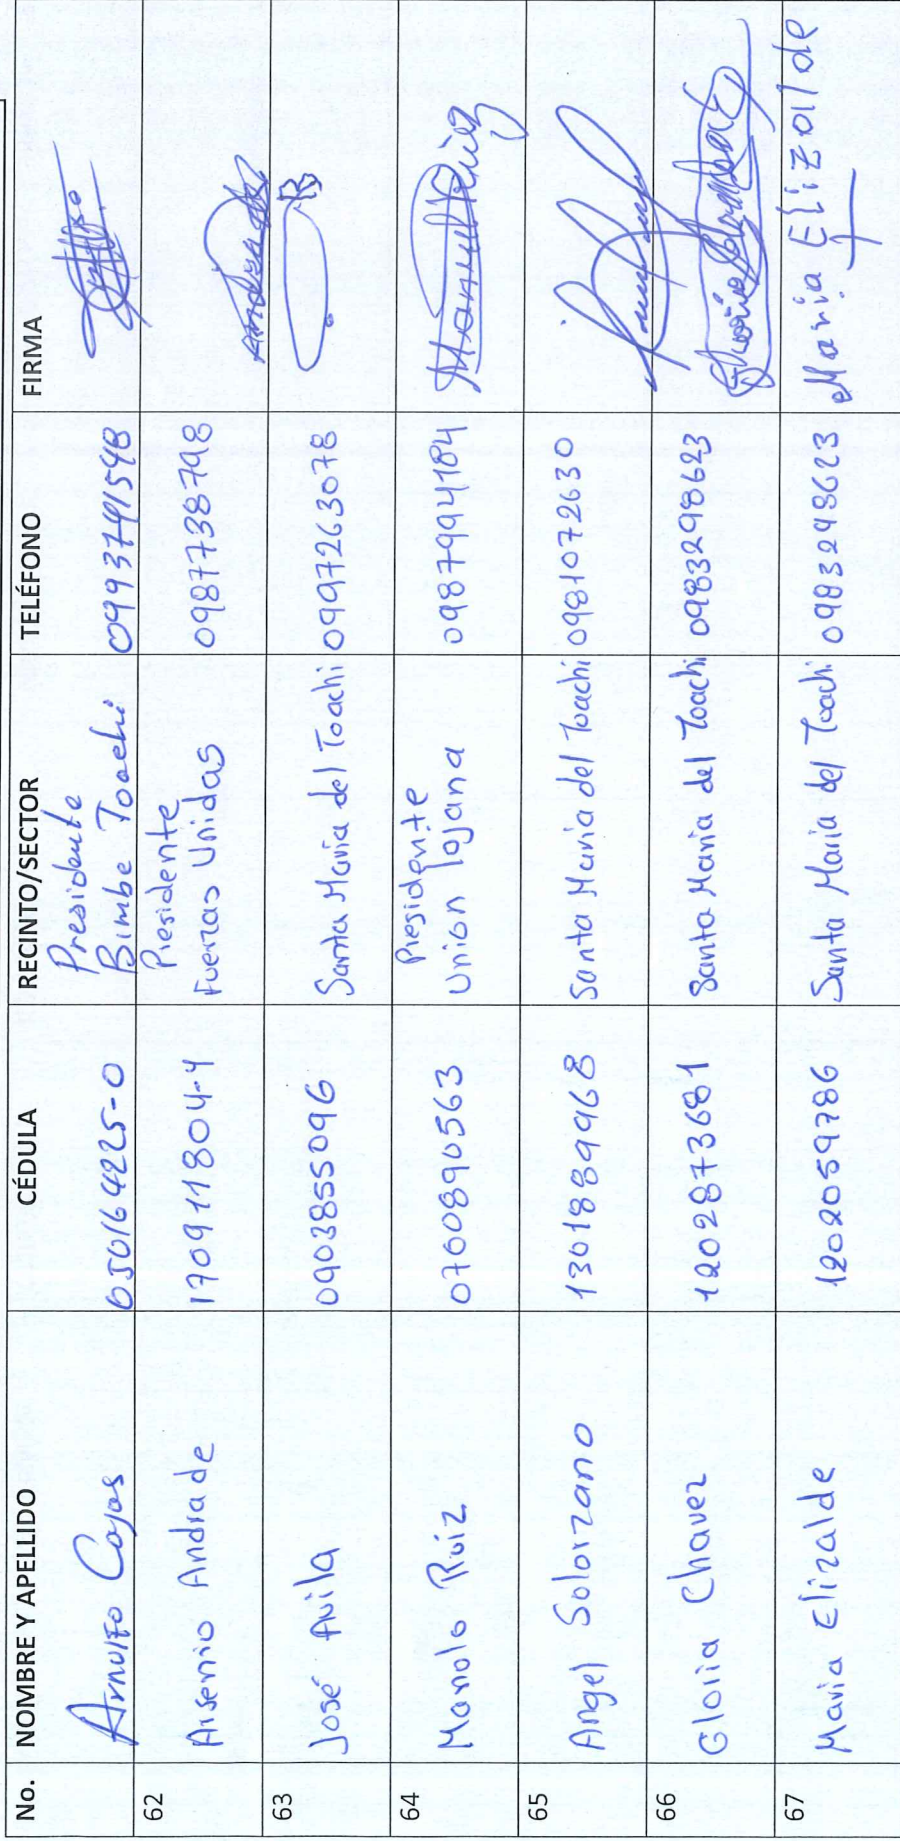 No. NOMBRE Y APELLIDO CÉDULA RECINTO/SECTOR TELÉFONO FIRMA
Presidente
Arnulfo Cajas 050164225-0 Bimbe Toachi 0993741548
62 Presidente
Arsenio Andrade 170911804-4 Fuerzas Unidas 0987738748 Andrade
63 José Avila 0903855096 Santa Maria del Toachi 0997263078
64 Presidente
Manolo Ruiz 0760890563 Unión lojana 0987994184 Manuel Ruiz
65 Angel Solorzano 1301889968 Santa Maria del Toachi 0981072630
66 Gloria Chavez 1202873681 Santa Maria del Toachi 0983298623
67 Maria Elizalde 1202059786 Santa Maria del Toachi 0983298623 Maria Elizalde